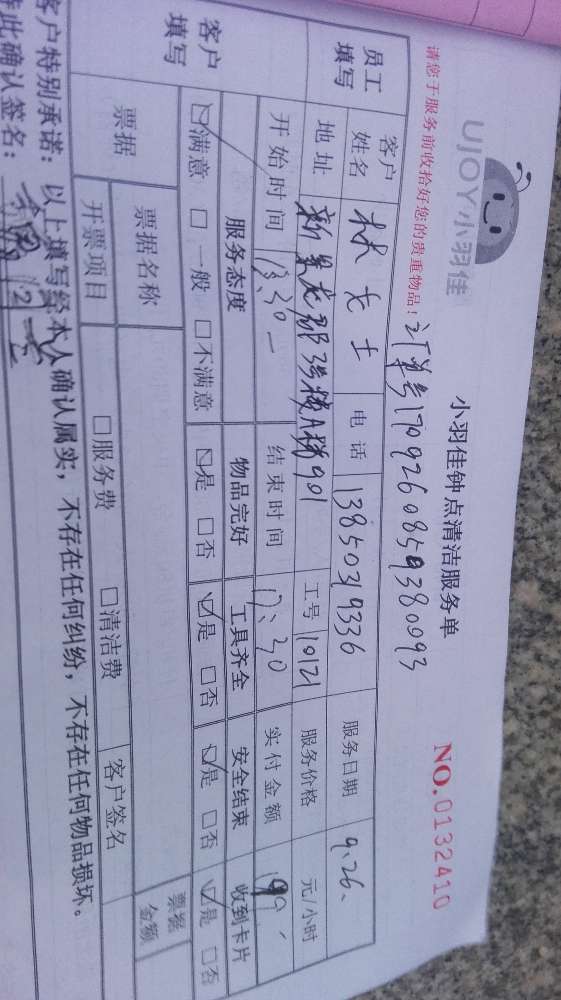 UJOY小羽佳
小羽佳钟点清洁服务单
NO.0132410
请您于服务前收拾好您的贵重物品！
订单号170926085938093
员工填写
客户姓名 林女士 电话 13850319336 服务日期 9.26、
地址 A梯901 工号 10121 服务价格 元/小时
开始时间 结束时间 17:30 实付金额 199
客户填写
服务态度 物品完好 工具齐全 安全结束 收到卡片
☑满意 □一般 □不满意 ☑是 □否 ☑是 □否 ☑是 □否 ☑是 □否
票据 票据名称 票据金额
开票项目 □服务费 □清洁费 客户签名
客户特别承诺：以上填写经本人确认属实，不存在任何纠纷，不存在任何物品损坏。
特此确认签名：